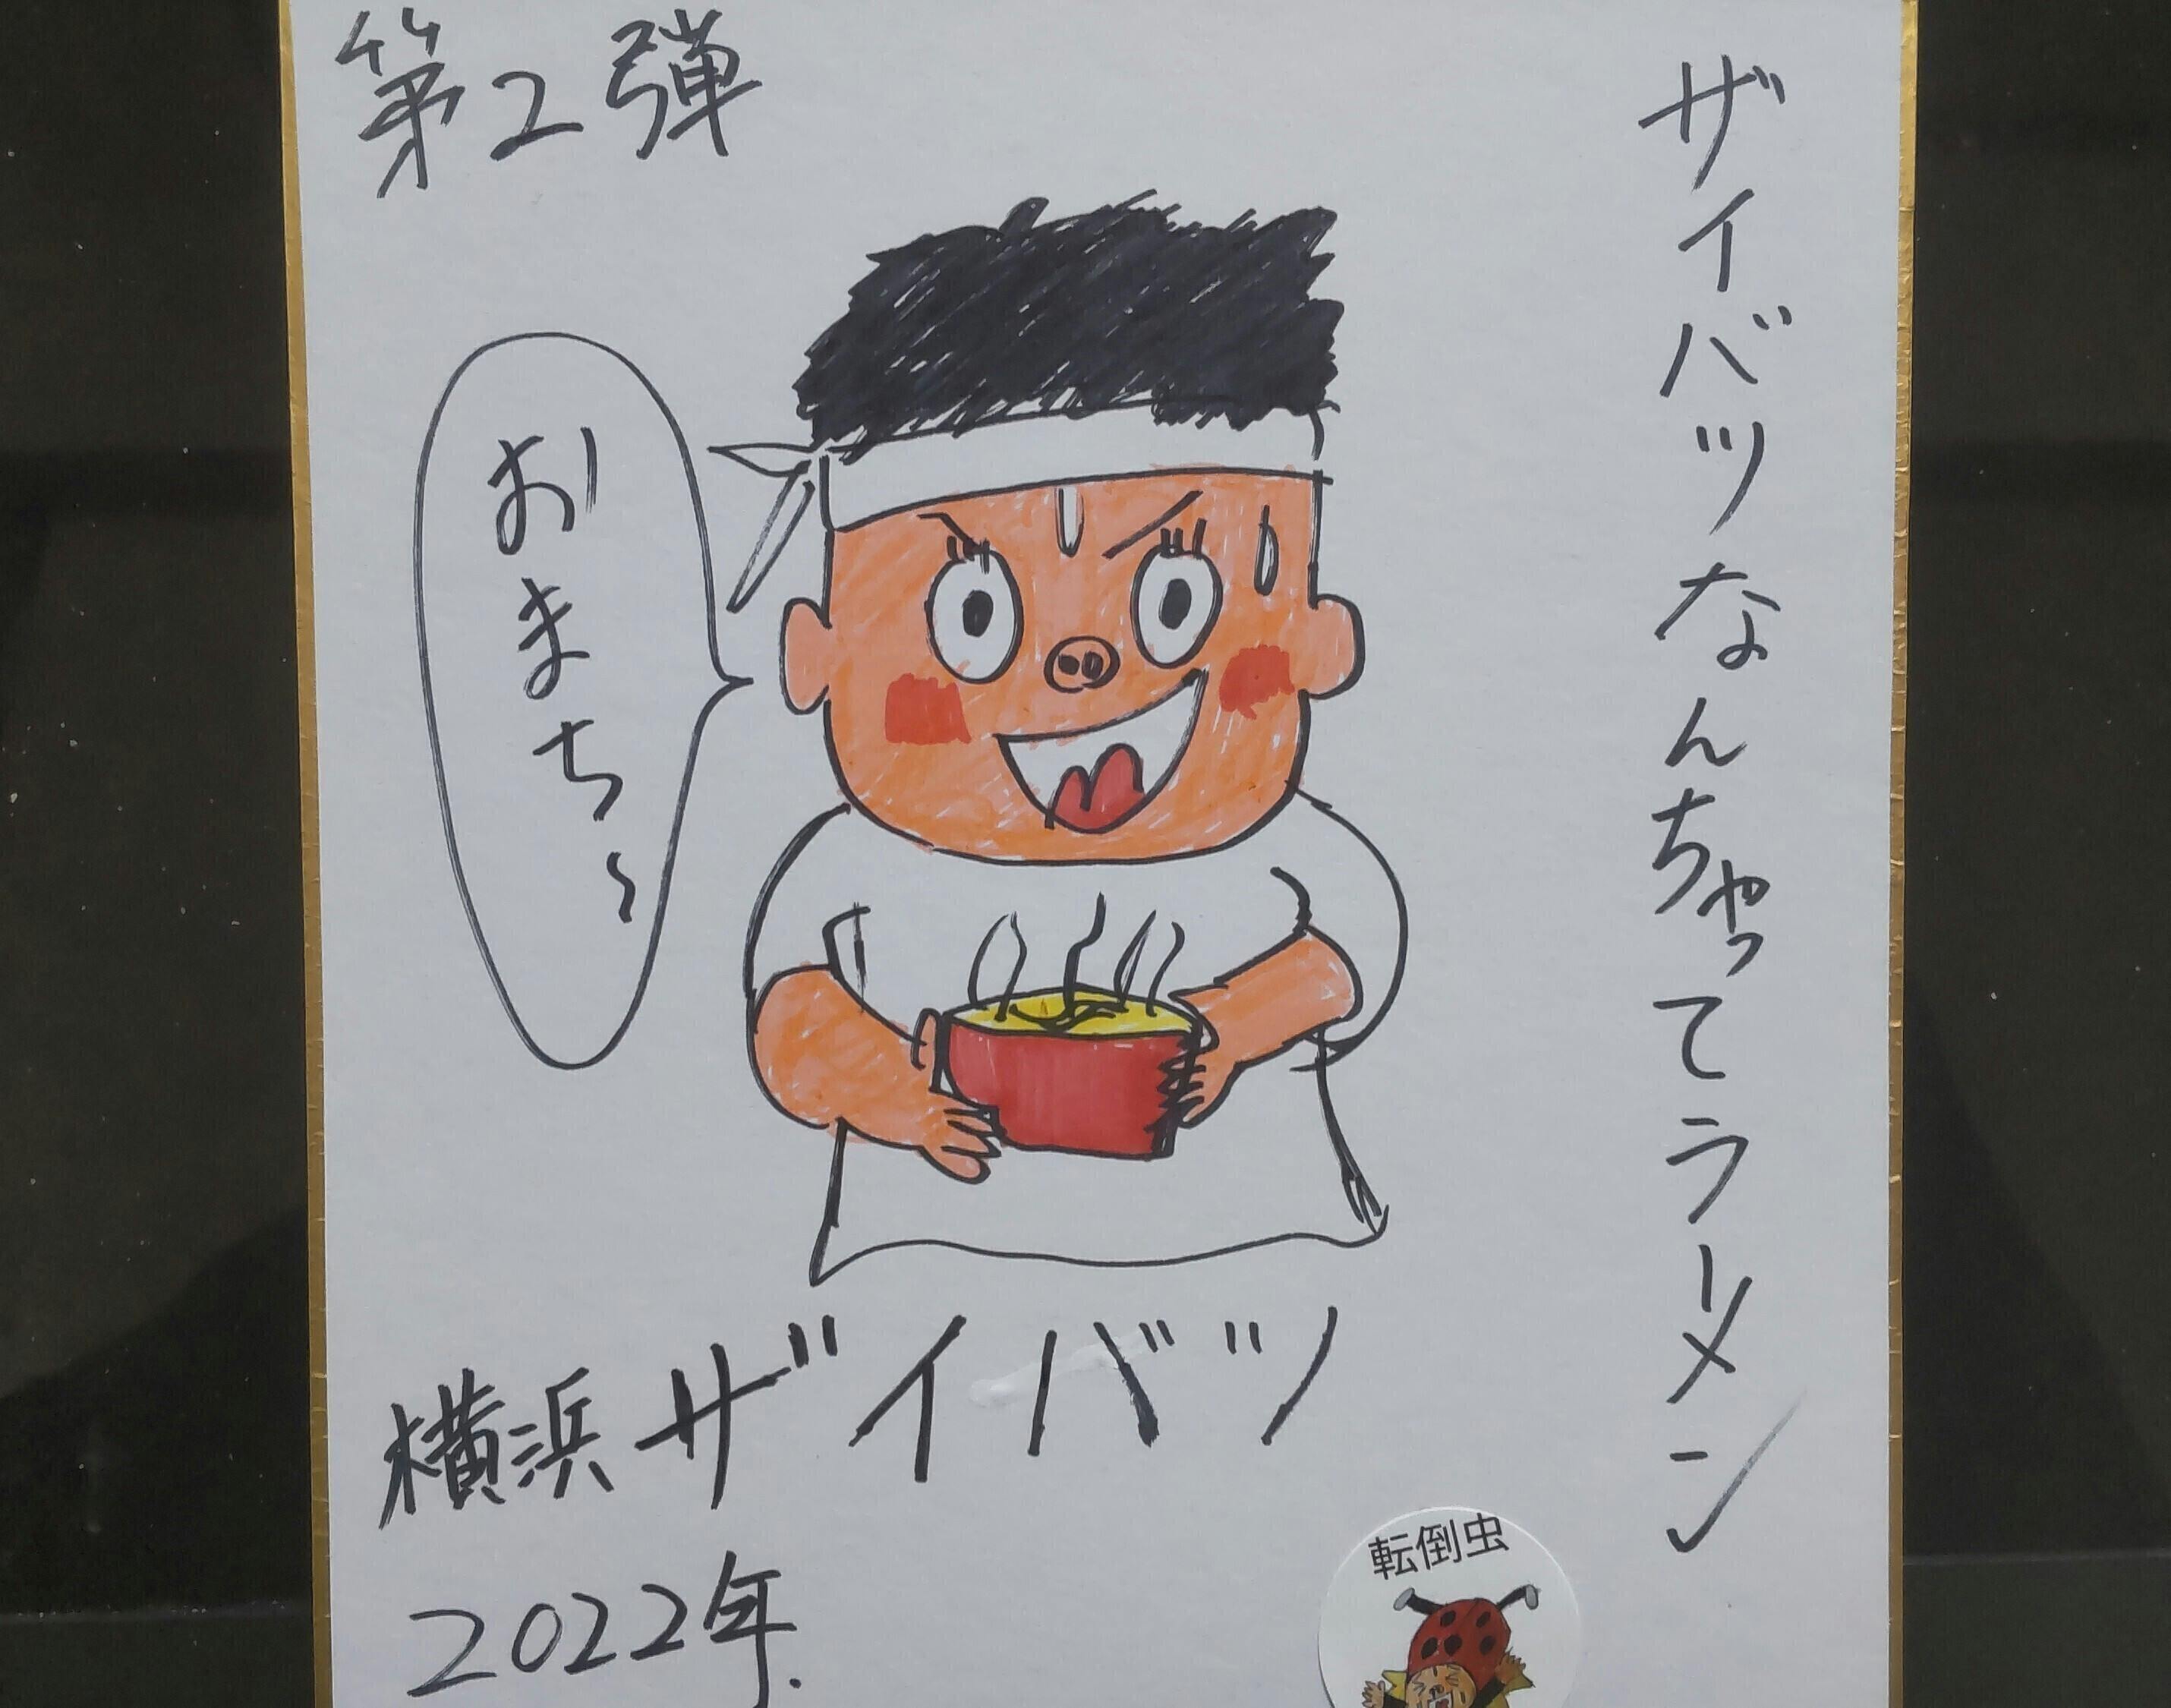 第2弾
ザイバツなんちゃってラーメン
おまち〜
横浜ザイバツ
2022年.
転倒虫